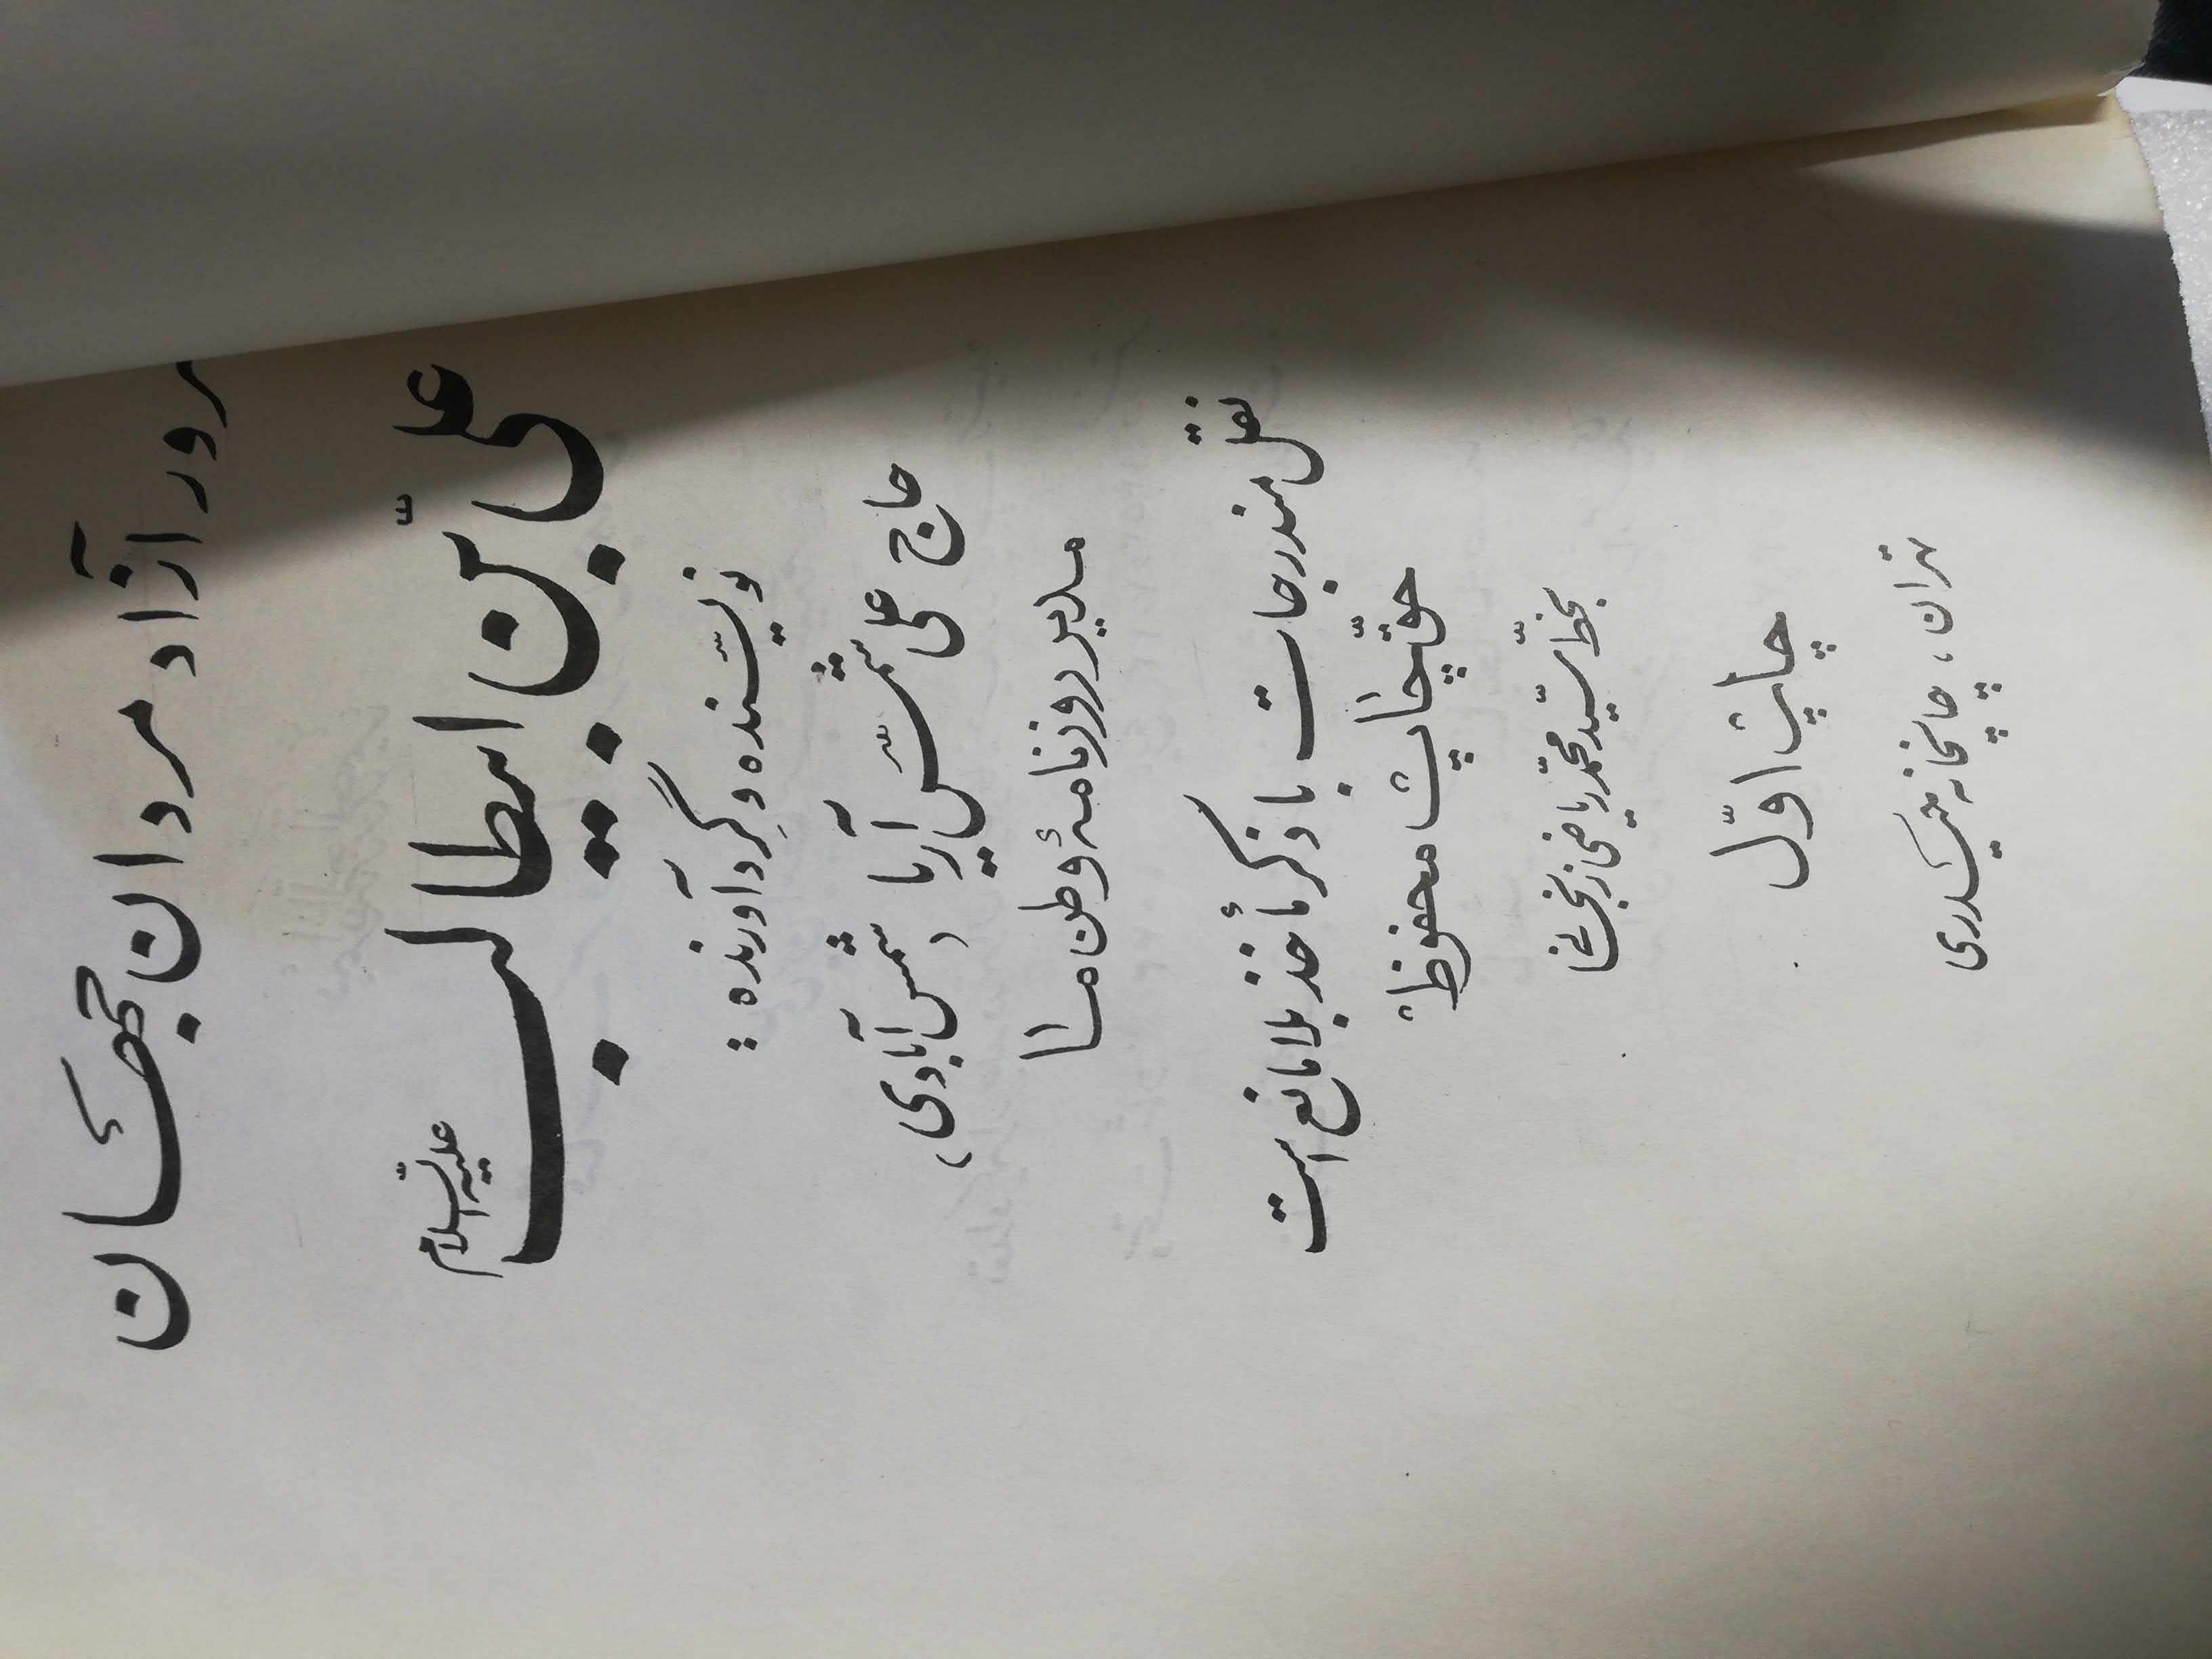 سرور آزاد مردان جهان
علی بن ابیطالب علیه السّلام
نویسنده و گِردآورنده :
حاج علی شمس آریا (شمس آبادی)
مدیر روزنامهٔ وطن ما
نقل مندرجات با ذکر مأخذ بلامانع است
حقّ چاپ محفوظ
بخطّ سیّد محمّد ریاضی زنجانی
چاپ اوّل
تهران، چاپخانه